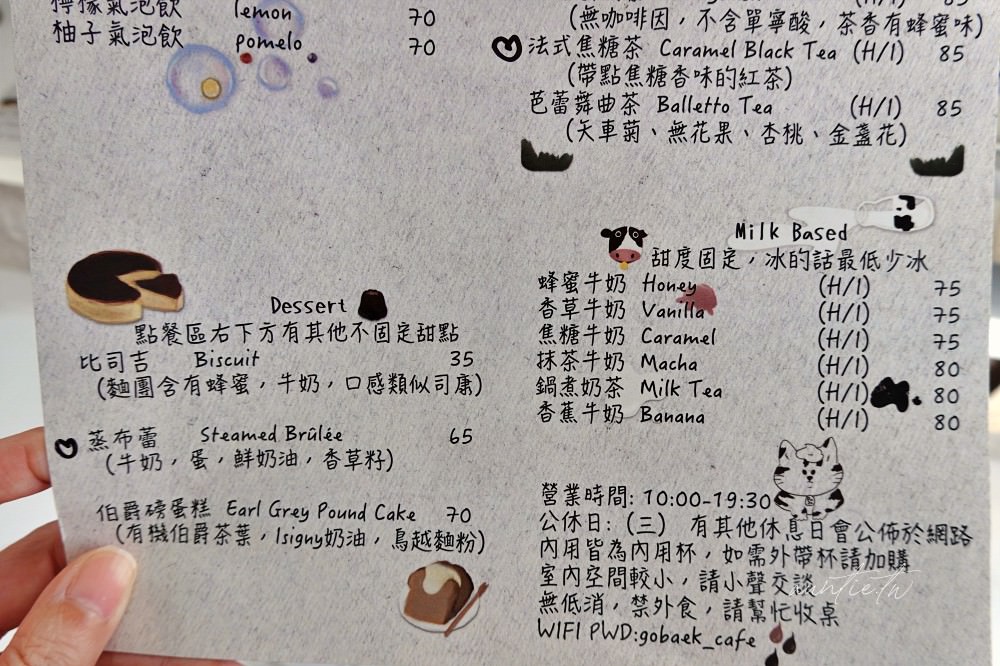 檸檬氣泡飲 lemon 70
柚子氣泡飲 pomelo 70
Dessert
點餐區右下方有其他不固定甜點
比司吉 Biscuit 35
(麵團含有蜂蜜，牛奶，口感類似司康)
蒸布蕾 Steamed Brûlée 65
(牛奶，蛋，鮮奶油，香草籽)
伯爵磅蛋糕 Earl Grey Pound Cake 70
(有機伯爵茶葉，Isigny奶油，鳥越麵粉)
(無咖啡因，不含單寧酸，茶香有蜂蜜味)
法式焦糖茶 Caramel Black Tea (H/I) 85
(帶點焦糖香味的紅茶)
芭蕾舞曲茶 Balletto Tea (H/I) 85
(矢車菊、無花果、杏桃、金盞花)
Milk Based
甜度固定，冰的話最低少冰
蜂蜜牛奶 Honey (H/I) 75
香草牛奶 Vanilla (H/I) 75
焦糖牛奶 Caramel (H/I) 75
抹茶牛奶 Macha (H/I) 80
鍋煮奶茶 Milk Tea (H/I) 80
香蕉牛奶 Banana (H/I) 80
營業時間: 10:00-19:30
公休日:（三） 有其他休息日會公佈於網路
內用皆為內用杯，如需外帶杯請加購
室內空間較小，請小聲交談
無低消，禁外食，請幫忙收桌
WIFI PWD:gobaek_cafe